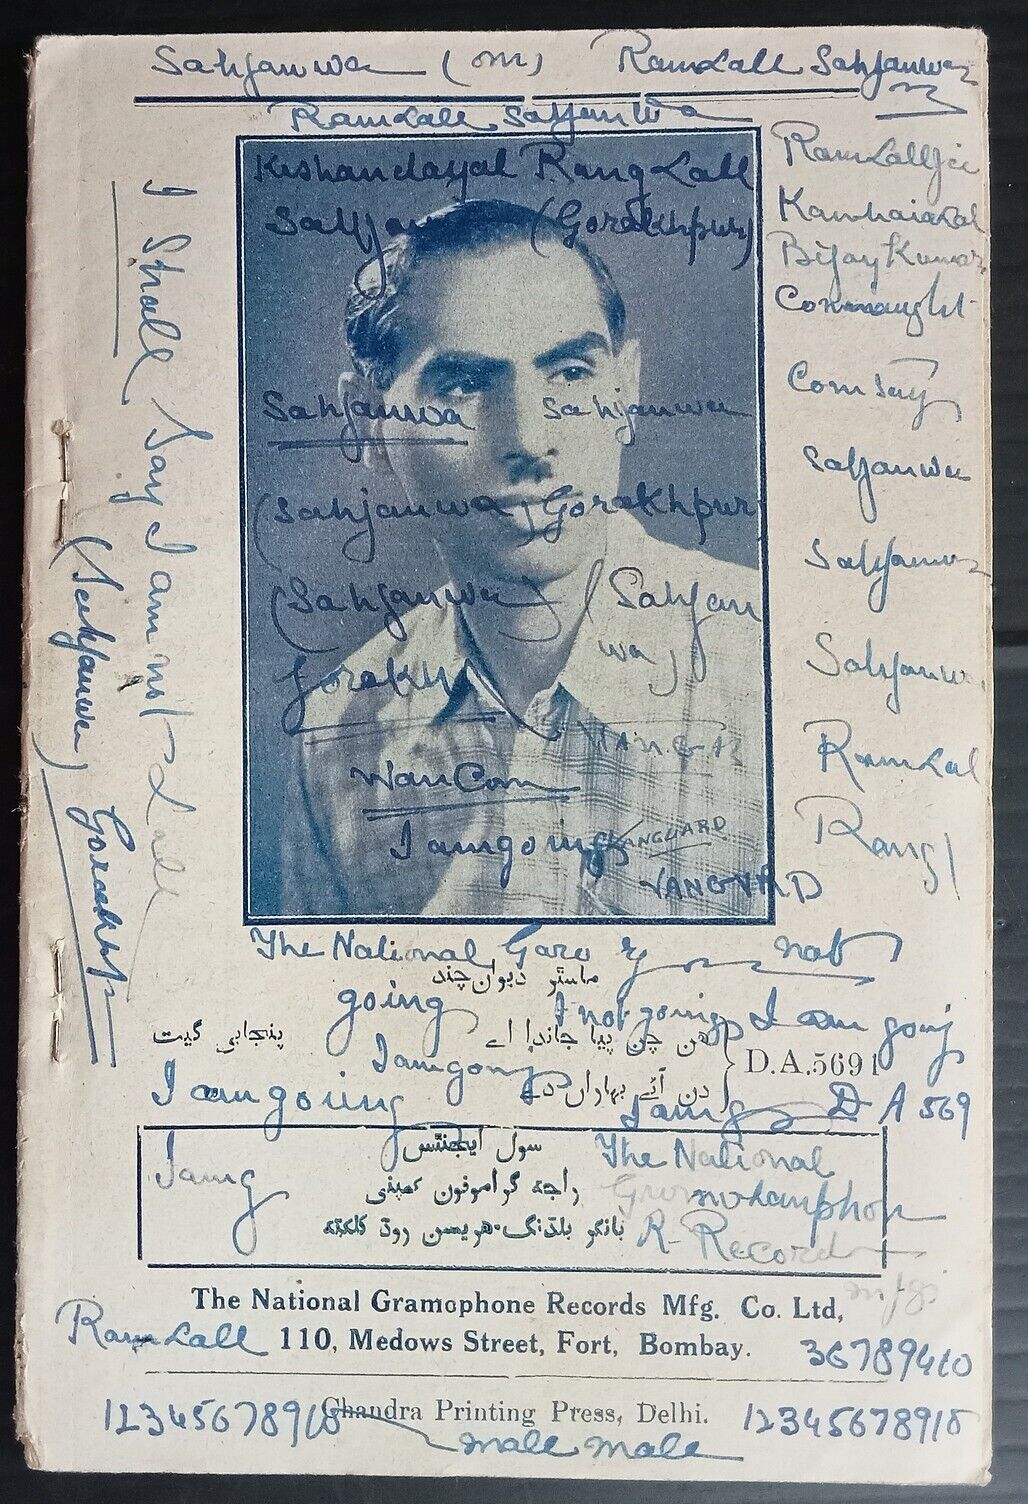 Sahjanwa (om) Ramlall Sahjanwa
Ramlall Sahjanwa
Kishandayal Rang Lall
(Gorakhpur)
Ramlallji
Kanhaialal
Bijay Kumar
Connaught
Sahjanwa Sahjanwa
Sahjanwa
(Sahjanwa) Gorakhpur
Sahjanwa
(Sahjanwa) (Sahjan
wa)
Sahjanwa
Ramlal
Rang
I am going VANGUARD
VANGUARD
I Shall Say I am not Lall
(Sahjanwa) Gorakhp
The National
ماسٹر دیوان چند
going I not going I am going
پنجابی گیت
ھن چن پیا جاندا اے
D.A.5691
دن آئے بہاراں دے
I am going
D A 569
سول ایجنٹس
راجہ گراموفون کمپنی
بانگو بلڈنگ-ھریسن روڈ کلکتہ
The National
R- Record
The National Gramophone Records Mfg. Co. Ltd,
110, Medows Street, Fort, Bombay.
Ramlall
36789410
Chandra Printing Press, Delhi.
12345678910
12345678910
male male